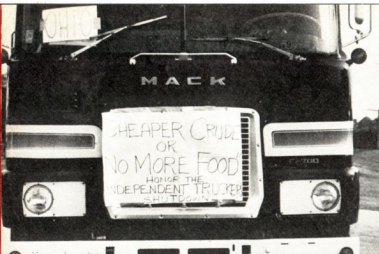 OHIO
MACK
CHEAPER CRUDE
OR
NO MORE FOOD
HONOR THE
INDEPENDENT TRUCKERS
SHUTDOWN